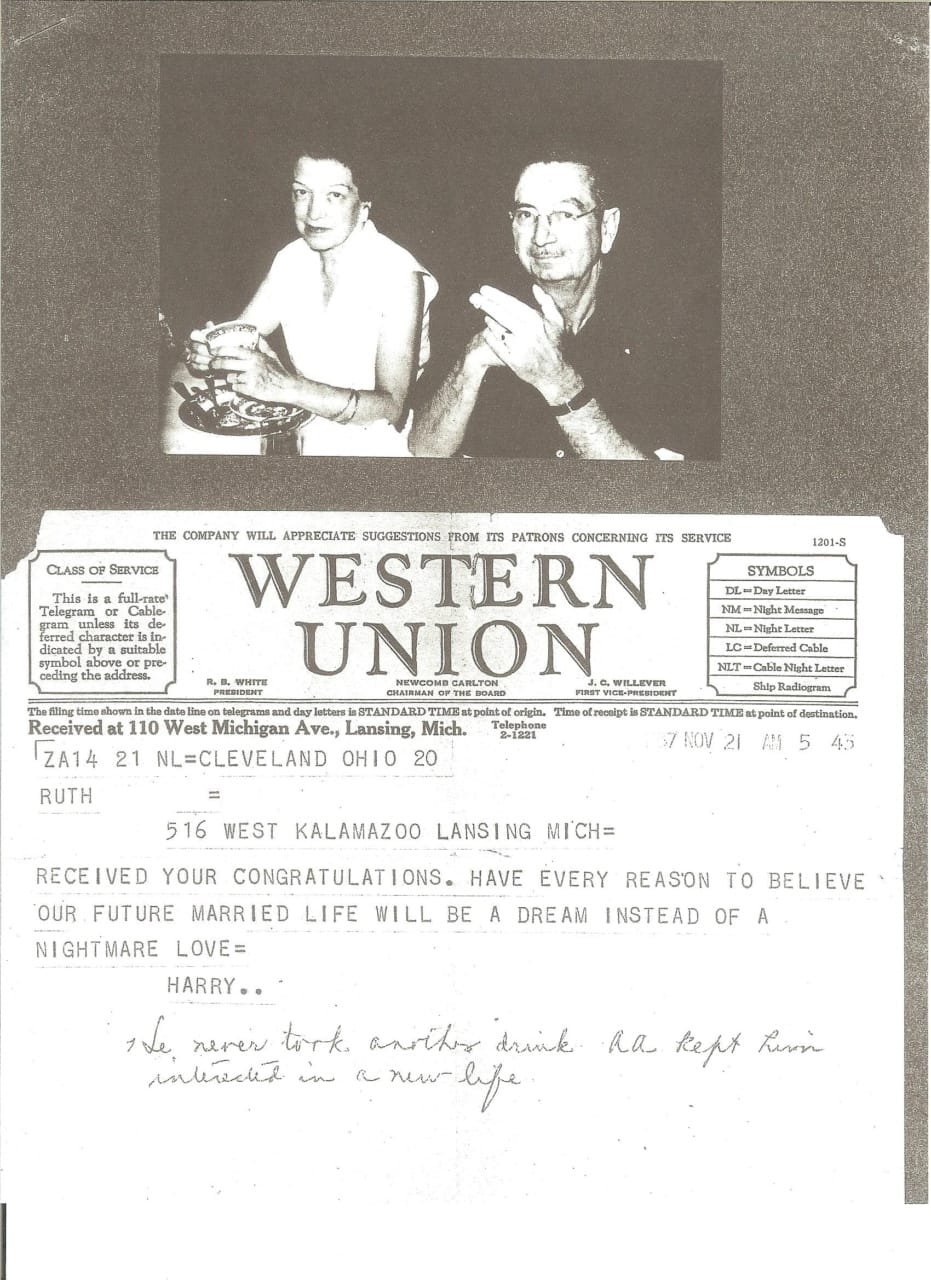 THE COMPANY WILL APPRECIATE SUGGESTIONS FROM ITS PATRONS CONCERNING ITS SERVICE
1201-S
CLASS OF SERVICE
This is a full-rate
Telegram or Cable-
gram unless its de-
ferred character is in-
dicated by a suitable
symbol above or pre-
ceding the address.
WESTERN
UNION
R. B. WHITE
PRESIDENT
NEWCOMB CARLTON
CHAIRMAN OF THE BOARD
J. C. WILLEVER
FIRST VICE-PRESIDENT
SYMBOLS
DL = Day Letter
NM = Night Message
NL = Night Letter
LC = Deferred Cable
NLT = Cable Night Letter
Ship Radiogram
The filing time shown in the date line on telegrams and day letters is STANDARD TIME at point of origin. Time of receipt is STANDARD TIME at point of destination.
Received at 110 West Michigan Ave., Lansing, Mich.
Telephone
2-1221
37 NOV 21 AM 5 43
ZA14 21 NL=CLEVELAND OHIO 20
RUTH =
516 WEST KALAMAZOO LANSING MICH=
RECEIVED YOUR CONGRATULATIONS. HAVE EVERY REASON TO BELIEVE
OUR FUTURE MARRIED LIFE WILL BE A DREAM INSTEAD OF A
NIGHTMARE LOVE=
HARRY..
He never took another drink AA kept him
interested in a new life.